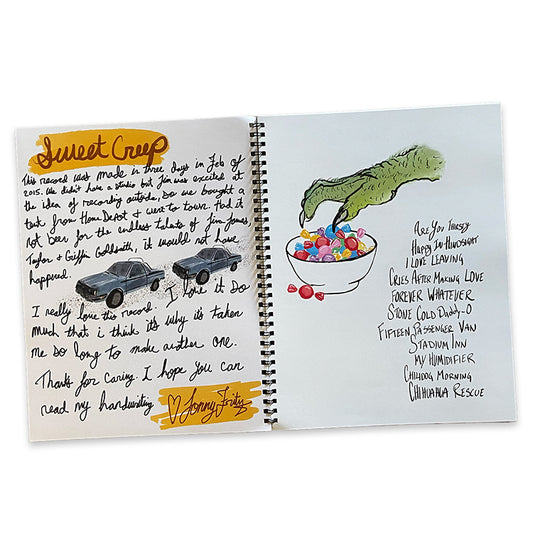 Sweet Creep
This record was made in three days in Feb of
2015. We didn't have a studio but Jim was excited at
the idea of recording outside, so we bought a
tent from Home Depot & went to town. Had it
not been for the endless talents of Jim James,
Taylor + Griffin Goldsmith, it would not have
happened.
I really love this record. I love it so
much that i think it's why it's taken
me so long to make another one.
Thanks for caring. I hope you can
read my handwriting
Jonny Fritz
Are You Thirsty
Happy In Hindsight
I Love Leaving
Cries After Making Love
Forever Whatever
Stone Cold Daddy-O
Fifteen Passenger Van
Stadium Inn
My Humidifier
Chilidog Morning
Chihuahua Rescue